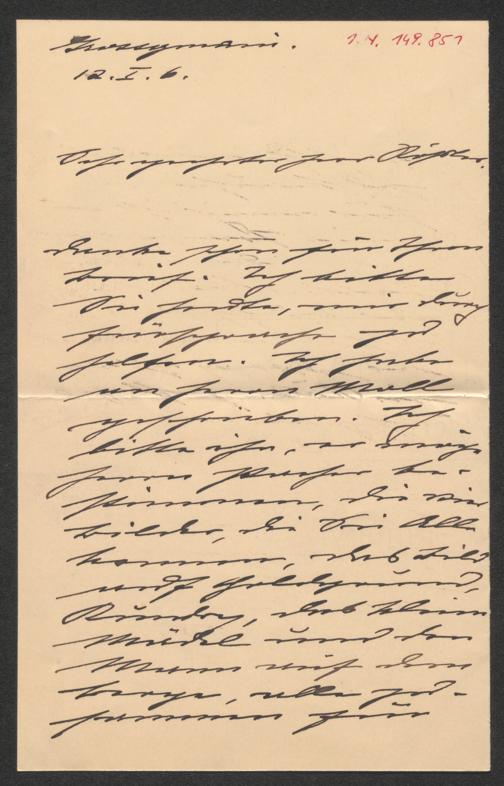 Grossgmain.
1.4. 149.851
12.I.6.
Sehr geehrter Herr Rößler,
danke schön für Ihren
Brief. Ich bitte
Sie heute, mir durch
Fürsprache zu
helfen. Ich habe
an Herrn Moll
geschrieben. Ich
bitte ihn, er möge
Herrn be-
stimmen, die vier
Bilder, die Sie alle
kennen, das Bild
auf Goldgrund,
das kleine
Mädel und den
Mann auf dem
Berge, alle zu-
sammen für